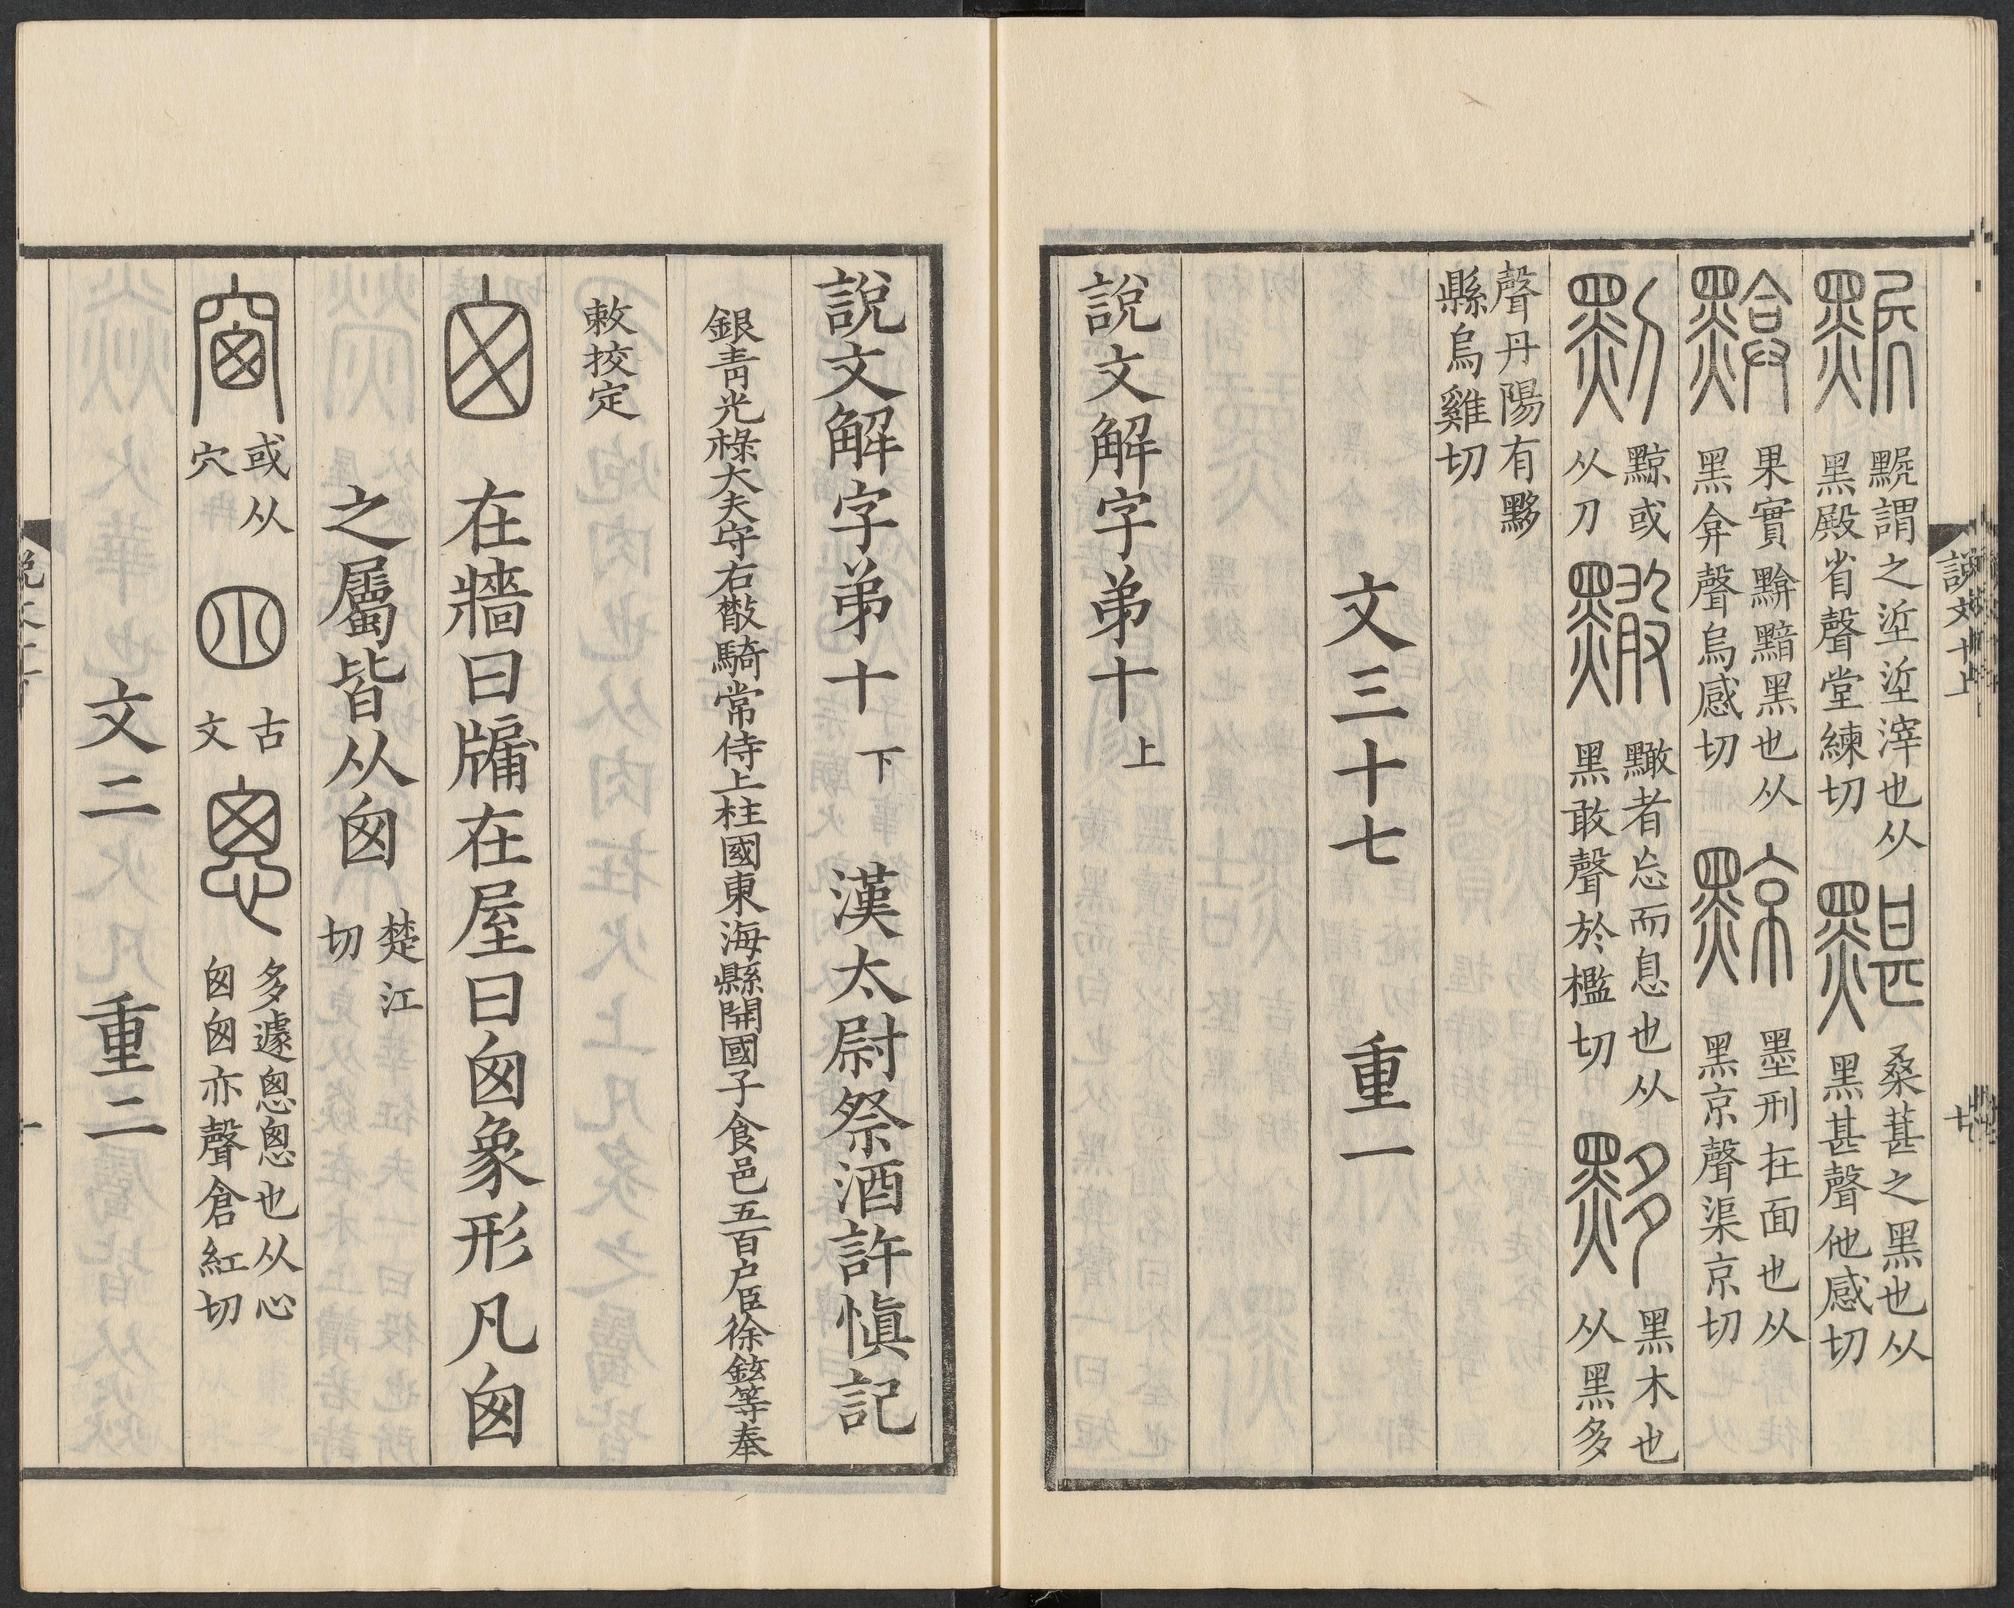 謂之垽垽滓也从黑殿省聲堂練切 黮 桑葚之黑也从黑甚聲他感切
黭 果實黭黯黑也从黑弇聲烏感切 黥 墨刑在面也从黑京聲渠京切
黥或从刀 𪒠 𪒠者忘而息也从黑敢聲於檻切 黟 黑木也从黑多
聲丹陽有黟縣烏雞切
文三十七 重一
說文解字弟十 上
說文十上 十
說文解字弟十 下 漢太尉祭酒許愼記
銀青光祿大夫守右散騎常侍上柱國東海縣開國子食邑五百戶臣徐鉉等奉
敕挍定
囪 在牆曰牖在屋曰囪象形凡囪
之屬皆从囪 楚江切
窗 或从穴 古文 悤 多遽悤悤也从心囪囪亦聲倉紅切
文二 重二